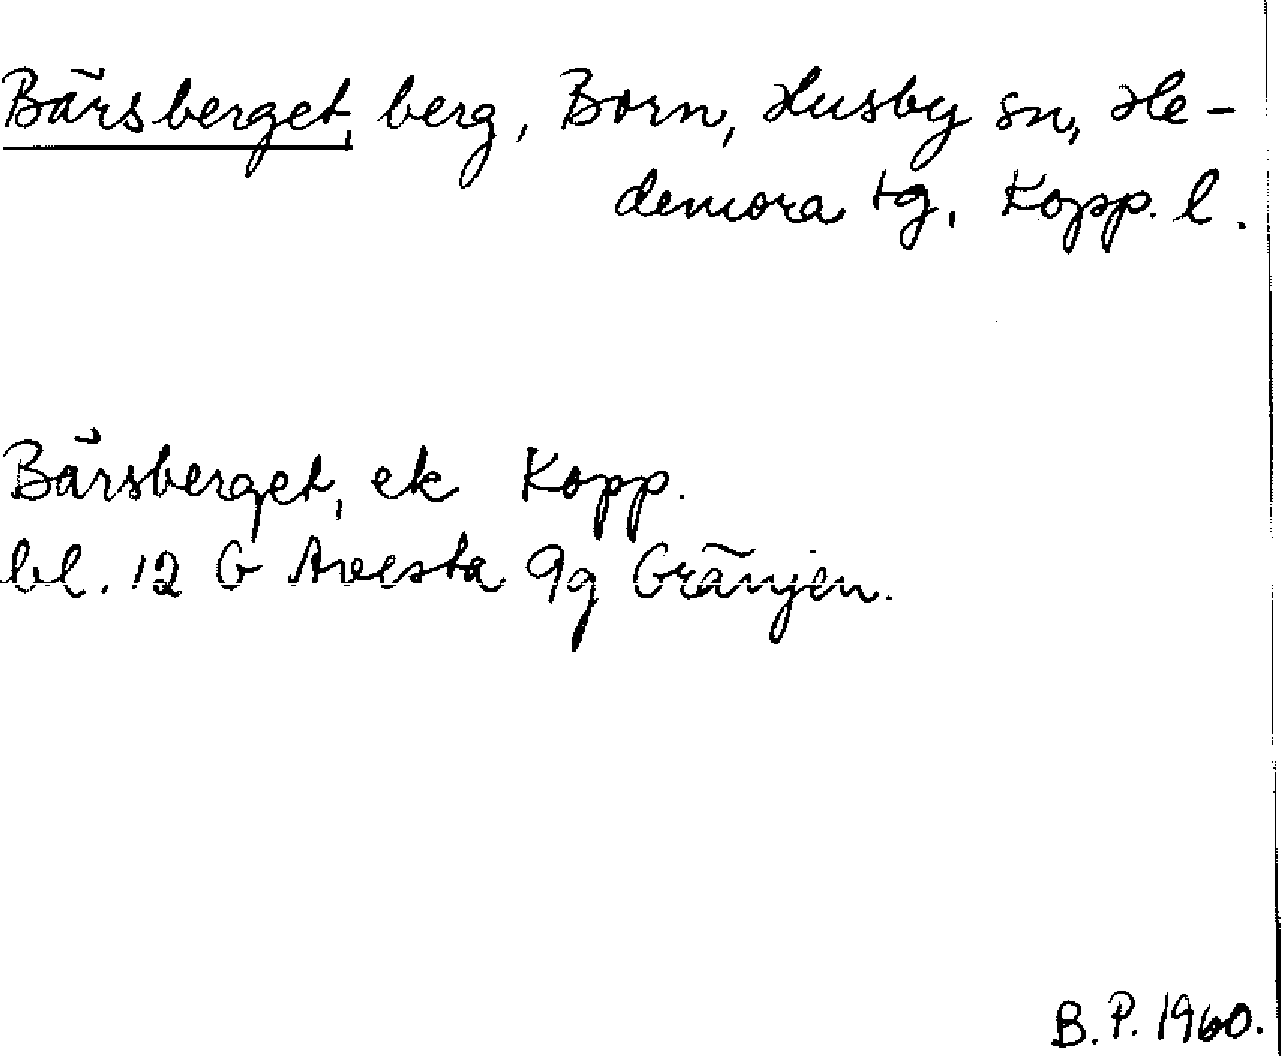 Bärsberget, berg, Born, Husby sn, He-
demora tg. Kopp. l.
Bärsberget, ek Kopp.
bl. 12 G Avesta 9g Gränjen.
B. P. 1960.